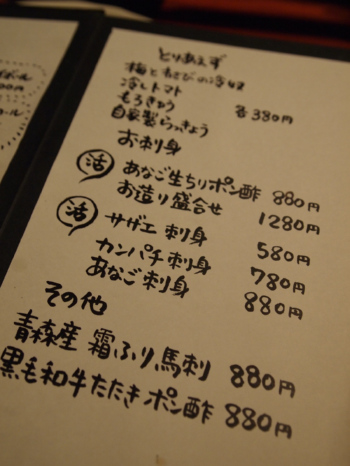 とりあえず
梅とわさびの冷奴
冷しトマト
もろきゅう 各380円
自家製らっきょう
お刺身
活 あなご生ちりポン酢 880円
お造り盛合せ 1280円
活 サザエ刺身 580円
カンパチ刺身 780円
あなご刺身 880円
その他
青森産 霜ふり馬刺 880円
黒毛和牛たたきポン酢 880円